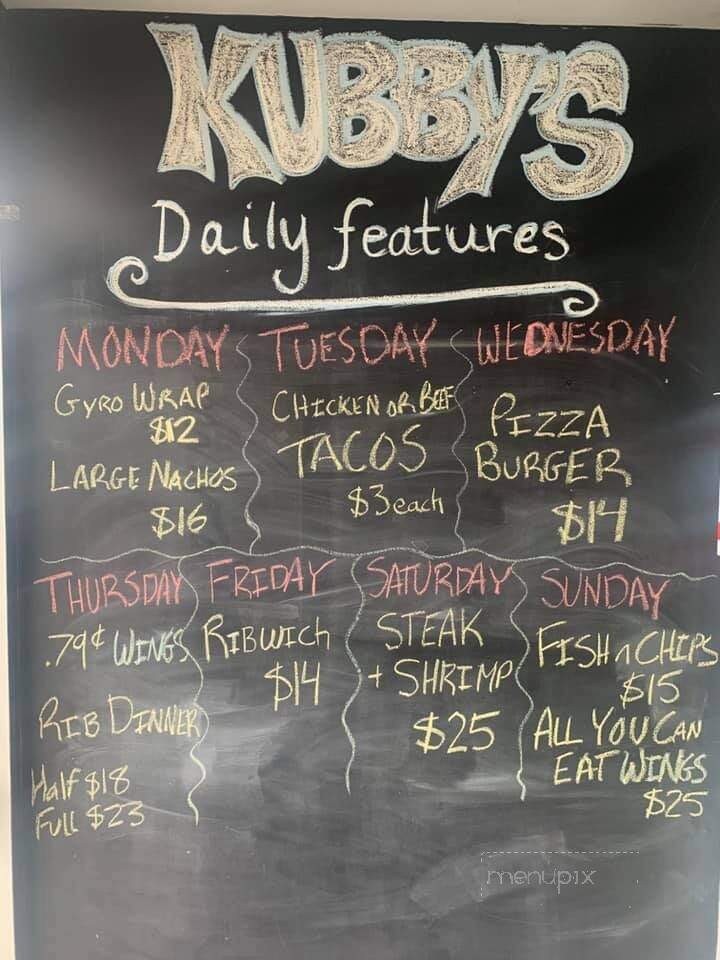 KUBBY'S
Daily features
MONDAY
GYRO WRAP
$12
LARGE NACHOS
$16
TUESDAY
CHICKEN OR BEEF
TACOS
$3 each
WEDNESDAY
PIZZA
BURGER
$14
THURSDAY
.79¢ WINGS
RIB DINNER
Half $18
Full $23
FRIDAY
RIBWICH
$14
SATURDAY
STEAK
+ SHRIMP
$25
SUNDAY
FISH n CHIPS
$15
ALL YOU CAN
EAT WINGS
$25
menupix